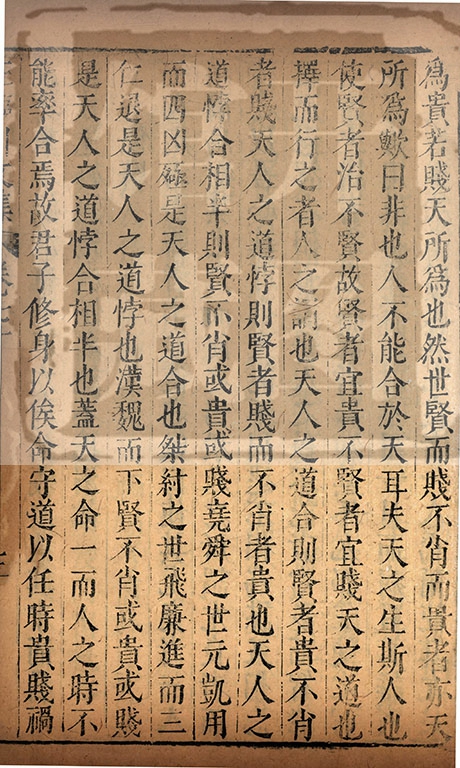 為貴若賤天所為也然世賢而賤不肖而貴者亦天
所為歟曰非也人不能合於天耳夫天之生斯人也
使賢者治不賢故賢者宜貴不賢者宜賤天之道也
擇而行之者人之謂也天人之道合則賢者貴不肖
者賤天人之道悖則賢者賤而不肖者貴也天人之
道悖合相半則賢不肖或貴或賤堯舜之世元凱用
而四凶殛是天人之道合也桀紂之世飛廉進而三
仁退是天人之道悖也漢魏而下賢不肖或貴或賤
是天人之道悖合相半也蓋天之命一而人之時不
能率合焉故君子修身以俟命守道以任時貴賤禍